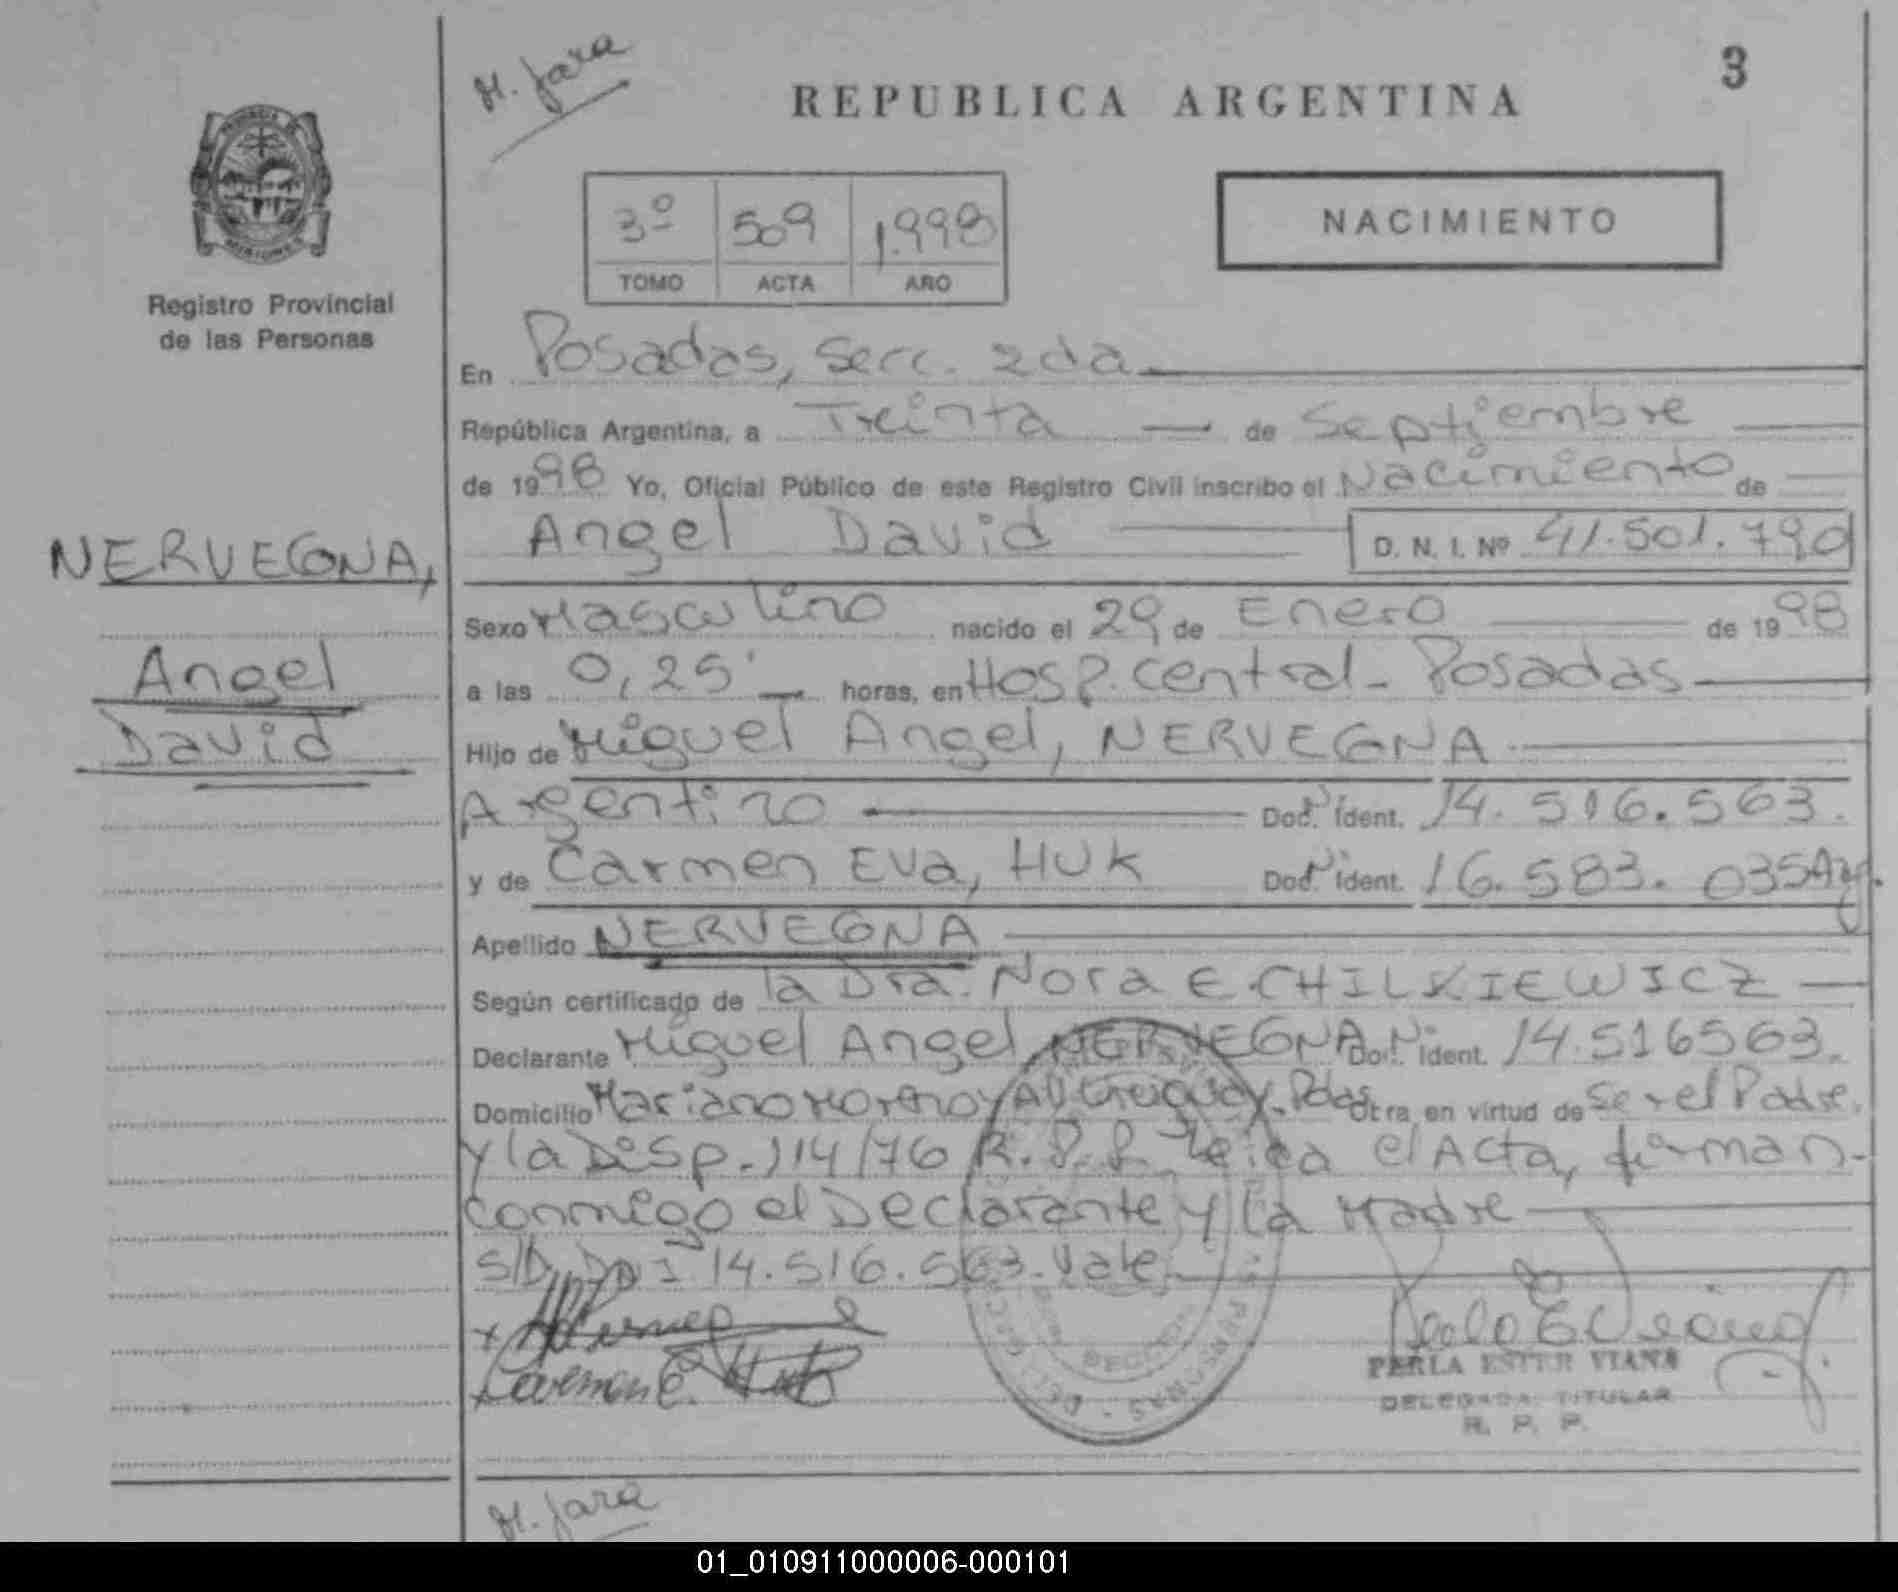 H. Jara
3
REPUBLICA ARGENTINA
3º 509 1.998
TOMO ACTA AÑO
NACIMIENTO
Registro Provincial
de las Personas
En Posadas, Secc. 2da
República Argentina, a Treinta de Septiembre
de 1998 Yo, Oficial Público de este Registro Civil inscribo el Nacimiento de
Angel David D. N. I. Nº 41.501.790
NERVEGNA,
Angel
David
Sexo Masculino nacido el 29 de Enero de 1998
a las 0,25' horas, en Hosp. Central - Posadas
Hijo de Miguel Angel, NERVEGNA
Argentino Doc. Ident. 14.516.563.
y de Carmen Eva, HUK Doc. Ident. 16.583.035 Arg.
Apellido NERVEGNA
Según certificado de la Dra. Nora E. CHILKIEWICZ
Declarante Miguel Angel, NERVEGNA Doc. Ident. 14.516563.
Domicilio Mariano Moreno y AV Uruguay. Pdas Otra en virtud de Ser el Padre.
y la Disp. 114/76 R.P.P. Leida el Acta, firman
conmigo el Declarante y la Madre
S/D. DNI 14.516.563. Vale
Carmen E. Huk
PERLA ESTER VIANA
DELEGADA TITULAR
R. P. P.
H. Jara
01_010911000006-000101